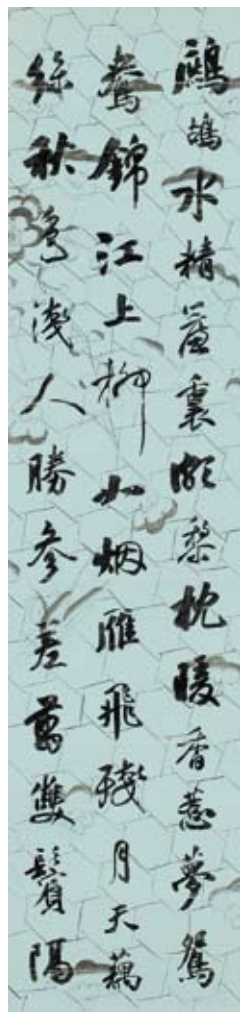 鷓鴣水精簾裏頗黎枕暖香惹夢鴛
鴦錦江上柳如烟雁飛殘月天藕
絲秋色淺人勝參差翦雙鬢隔